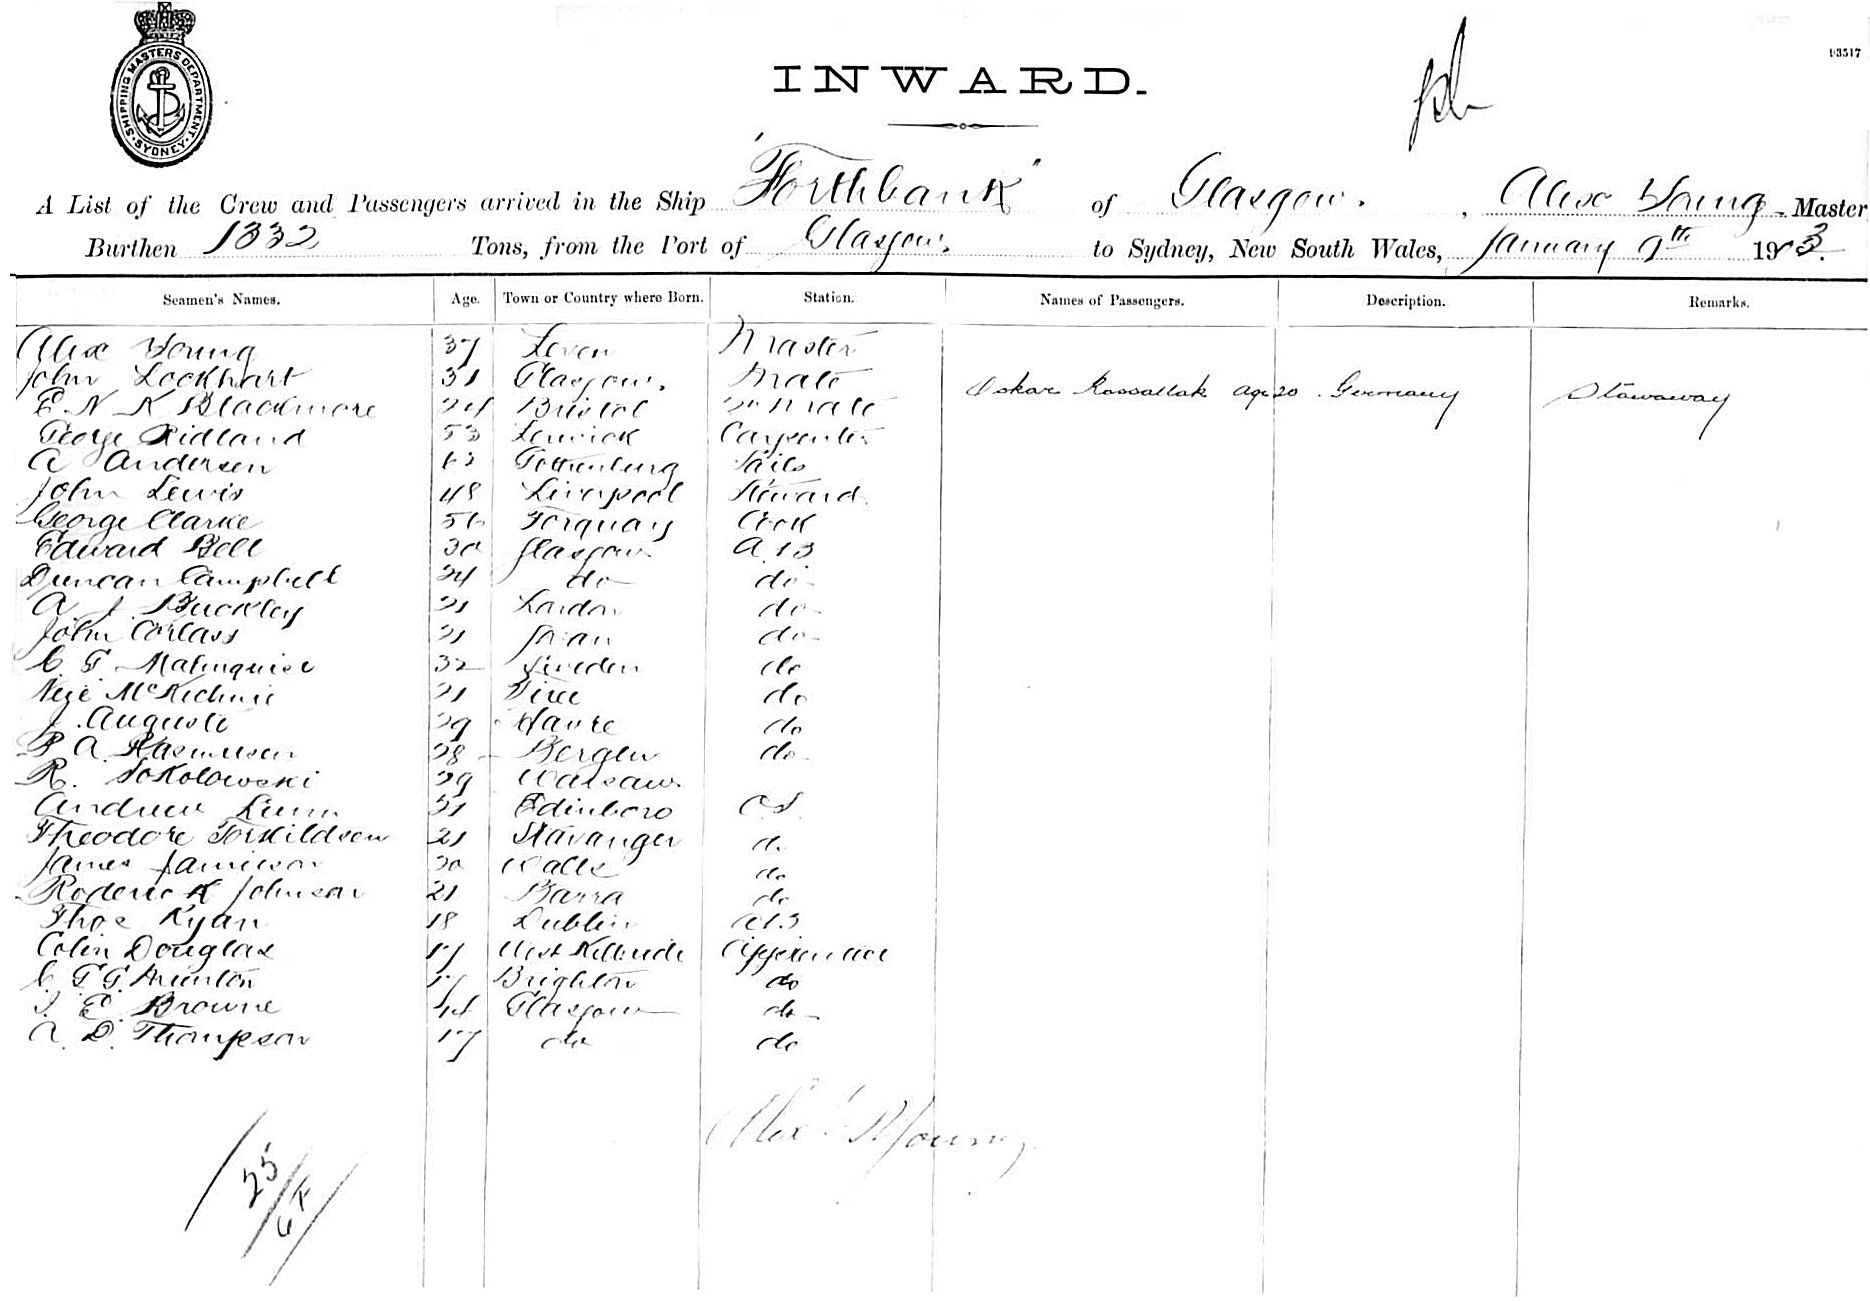 SHIPPING MASTERS DEPARTMENT
SYDNEY
13517
INWARD.
A List of the Crew and Passengers arrived in the Ship "Forthbank" of Glasgow. , Alex Young - Master
Burthen 1332 Tons, from the Port of Glasgow, to Sydney, New South Wales, January 9th 1903.
Seamen's Names. Age. Town or Country where Born. Station. Names of Passengers. Description. Remarks.
Alex Young 37 Leven Master
John Lockhart 31 Glasgow. Mate
Oskar Kossallak age 20 . Germany Stowaway
E N K Blackmore 24 Bristol 2nd Mate
George Ridland 53 Lerwick Carpenter
A Andersen 62 Gothenburg Sails
John Lewis 48 Liverpool Steward
George Clarke 56 Torquay Cook
Edward Bell 30 Glasgow A.B
Duncan Campbell 24 do do
A J Buckley 21 London do
John Corlass 21 do
C G Malmquist 32 Sweden do
Neil McKechnie 21 Tiree do
J. Auguste 29 Havre do
B A Rasmussen 28 Bergen do
R. Sokolowski 29 Warsaw.
Andrew Lumm 21 Edinboro O.S.
Theodore Torkildsen 21 Stavanger do
James Jamieson 20 Walls do
Roderick Johnson 21 Barra do
Thos Ryan 18 Dublin A B
Colin Douglas 17 West Kilbride Apprentice
C G G. 17 Brighton do
J. E. Browne Glasgow do
A. D. Thompson 17 do do
Alexr Young
25